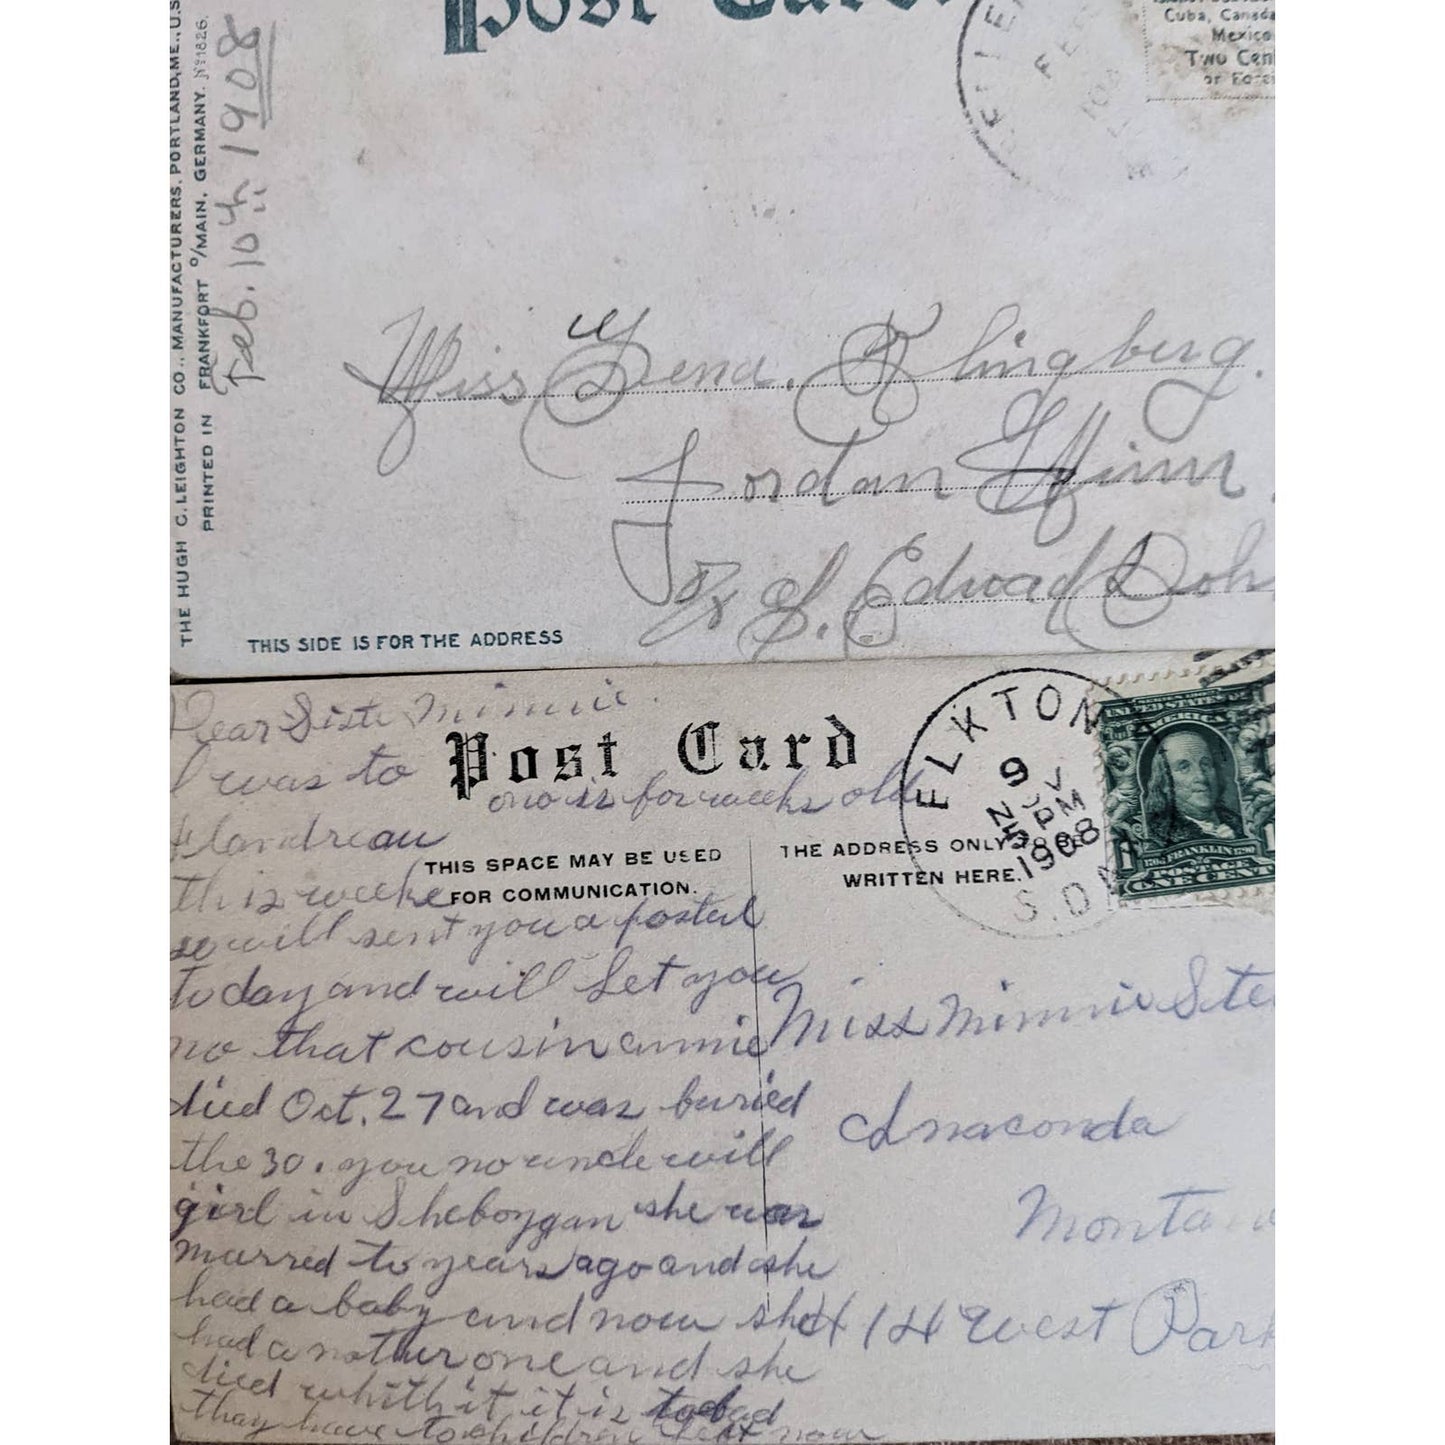 Post Card
Cuba, Canada
Mexico
Two Cen
FE
THE HUGH C. LEIGHTON CO., MANUFACTURERS, PORTLAND, ME., U.S.
PRINTED IN FRANKFORT O/MAIN, GERMANY. No 1826.
Feb. 10th, 1908
Miss Lena. Klingberg.
Jordan Minn.
% S. Edward Doh
THIS SIDE IS FOR THE ADDRESS
Dear Siste Minnie.
Post Card
I was to
one is for weeks old
Flandreau
THIS SPACE MAY BE USED
FOR COMMUNICATION.
this weeke
so will sent you a postal
today and will let you
no that cousin annie
died Oct. 27 and was buried
the 30. you no uncle will
girl in Sheboygan she was
marred to years ago and she
had a baby and now she
had a nother one and she
died whith it it is to bad
thay have to children left now
ELKTON
NOV
9
5 PM
1908
S.DAK
UNITED STATES
OF AMERICA
1
FRANKLIN
THE ADDRESS ONLY
WRITTEN HERE.
Miss Minnie Ste
Anaconda
Montana
414 West Park